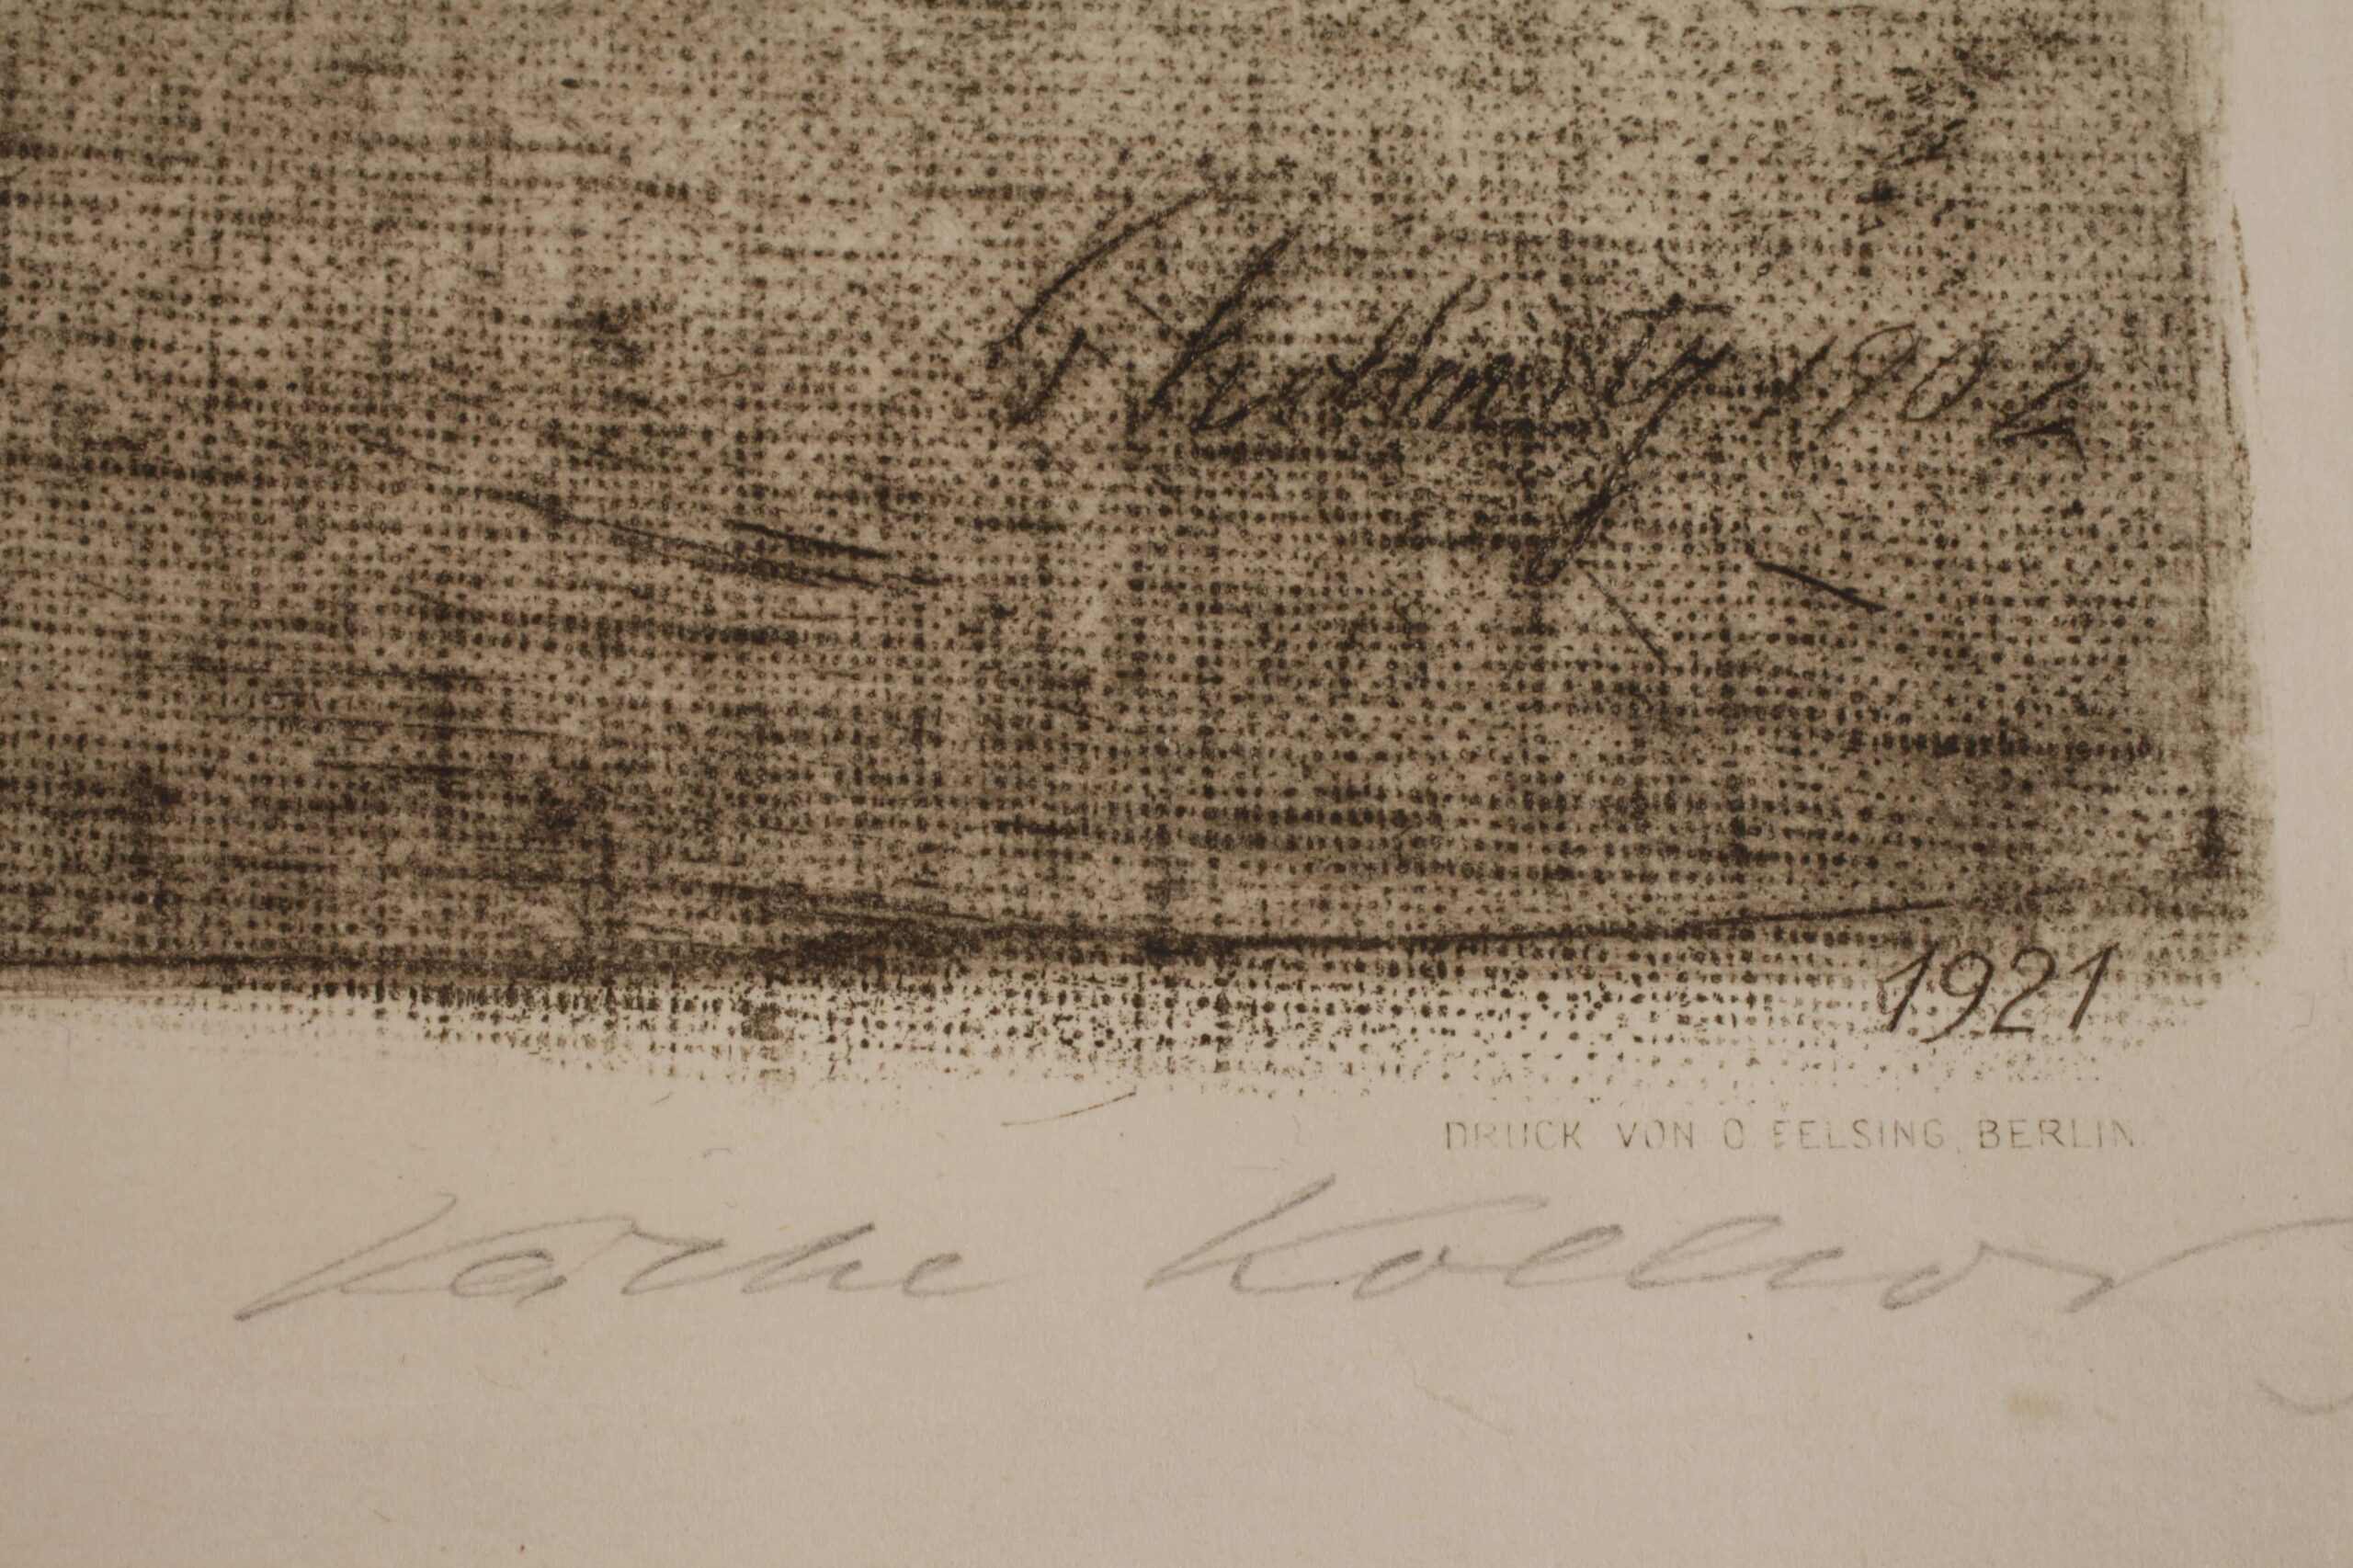 Kollwitz 1902
1921
DRUCK VON O. FELSING, BERLIN
Käthe Kollwi